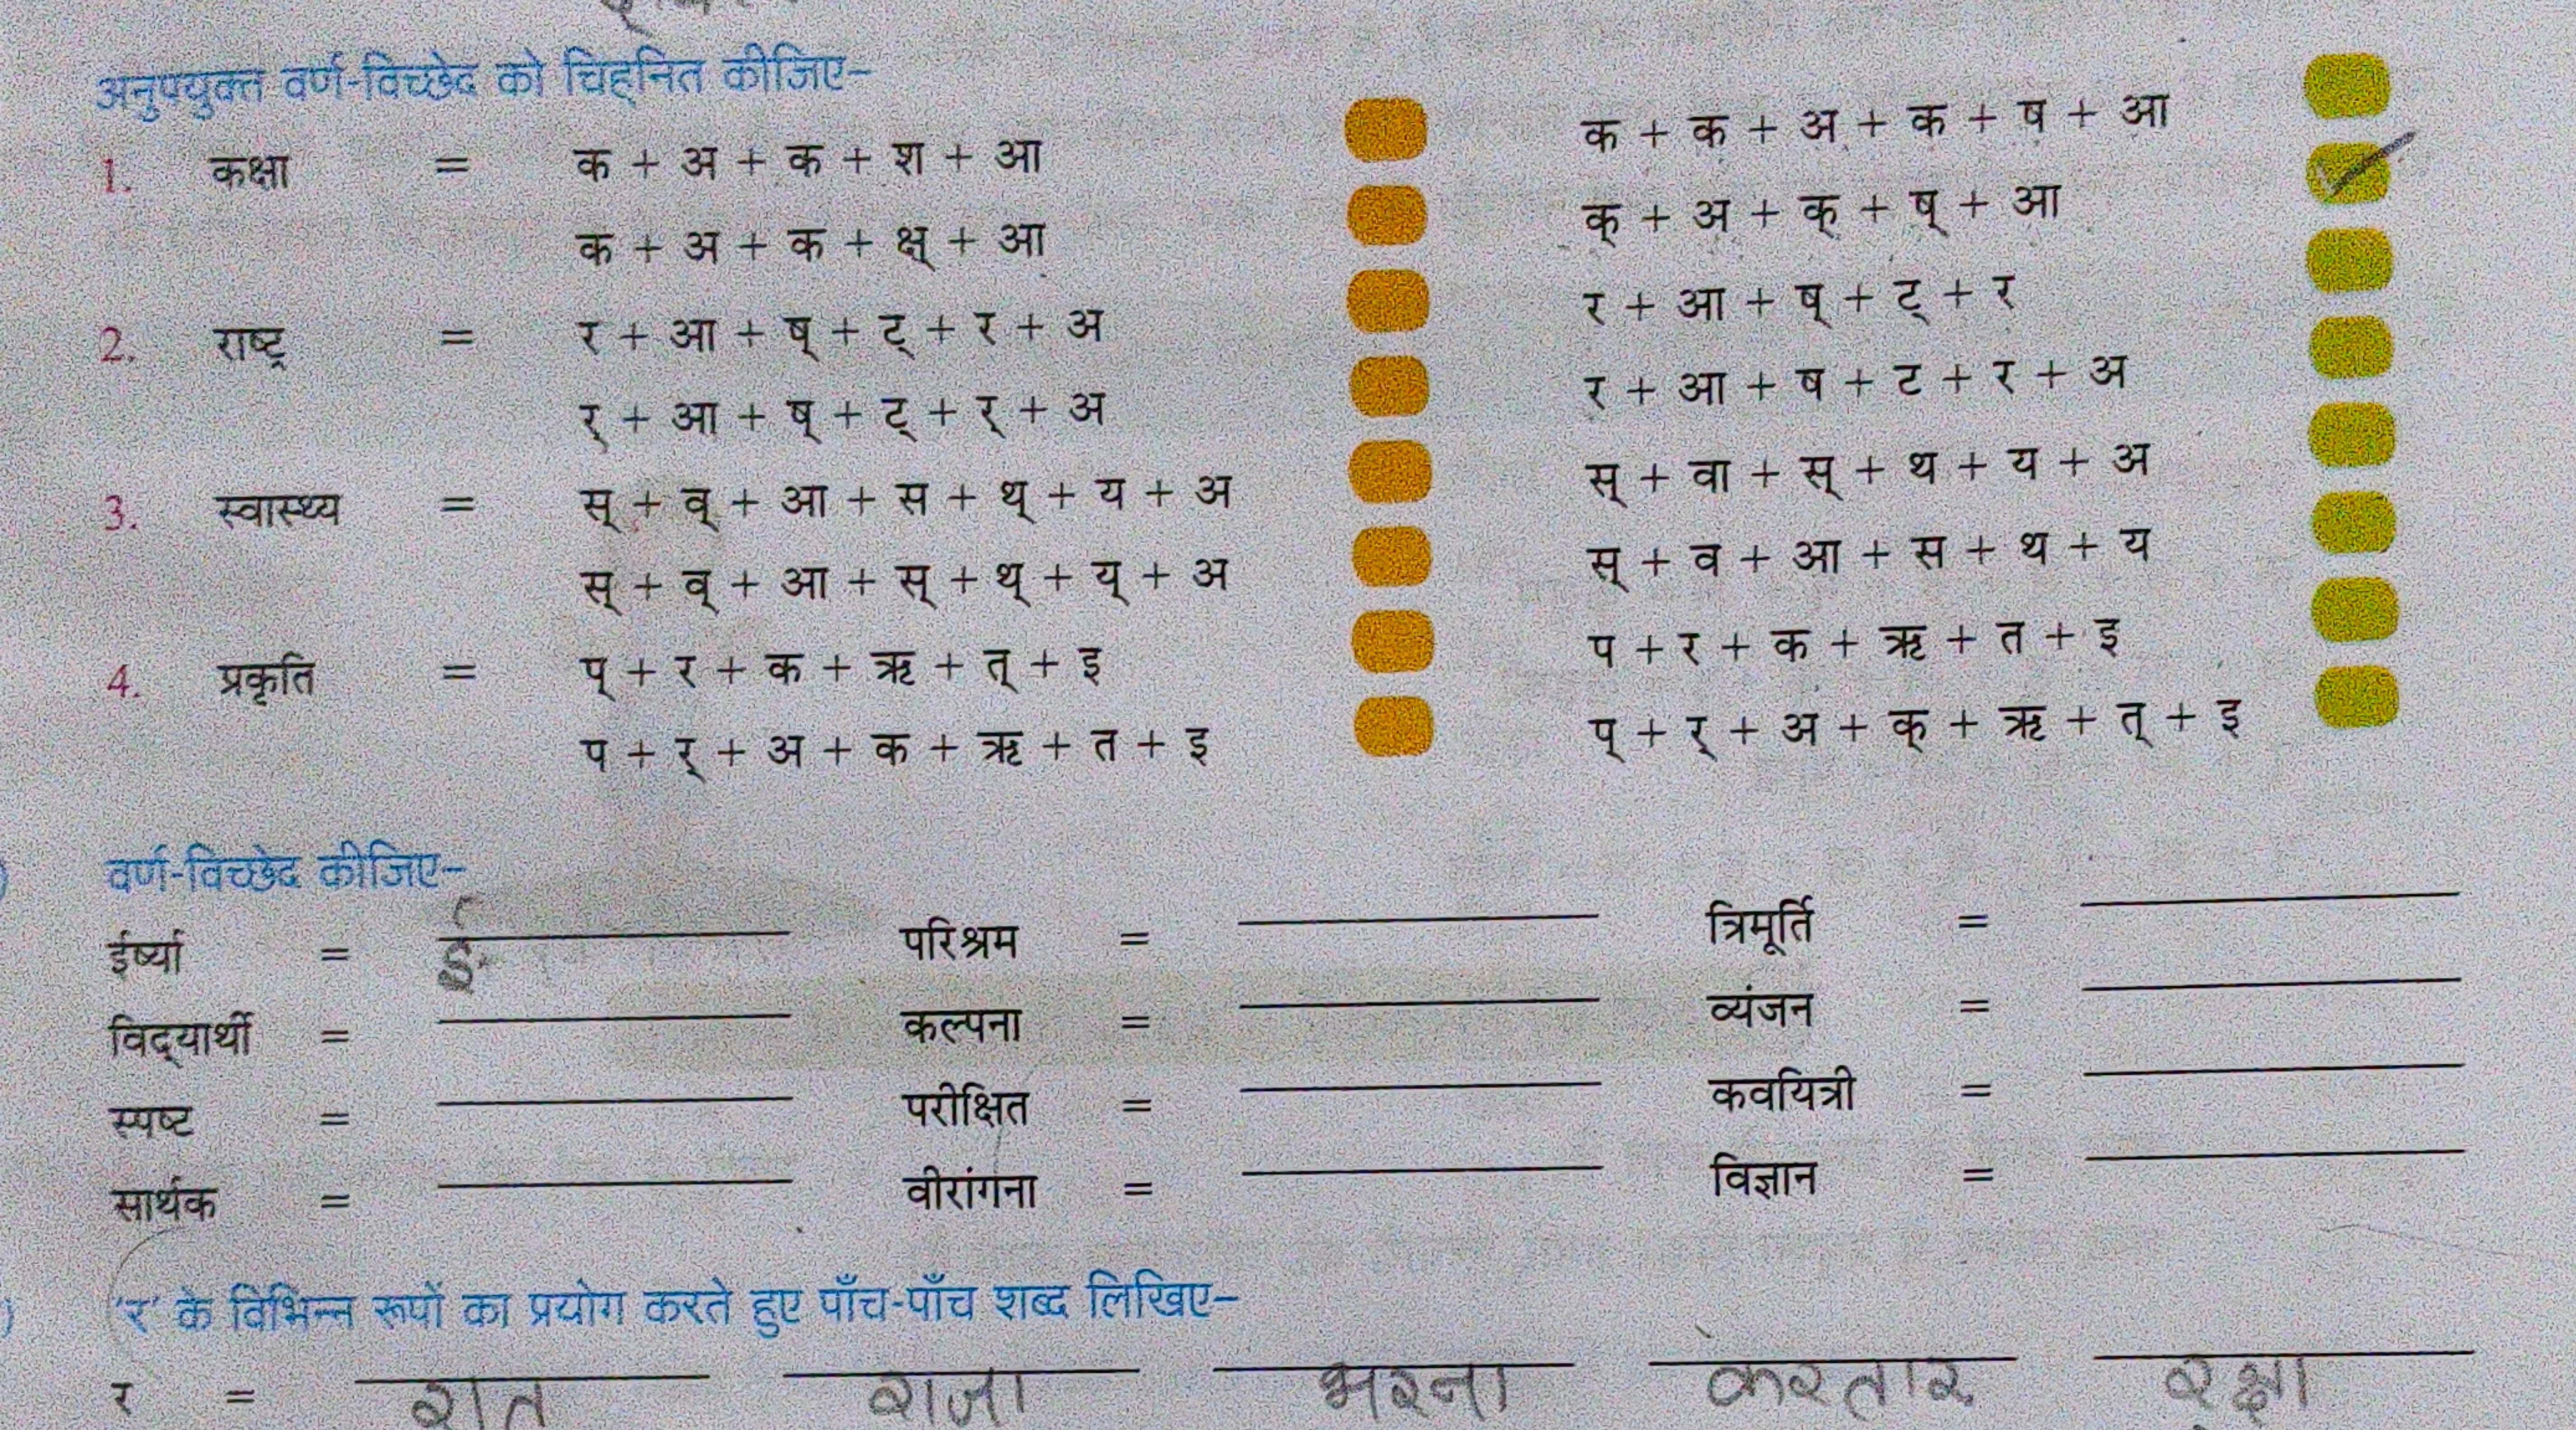 अनुपयुक्त वर्ण-विच्छेद को चिह्नित कीजिए-
1. कक्षा = क + अ + क + श + आ क + क + अ + क + ष + आ
क + अ + क + क्ष् + आ क् + अ + क् + ष् + आ
2. राष्ट्र = र + आ + ष् + ट् + र + अ र + आ + ष् + ट् + र
र् + आ + ष् + ट् + र् + अ र + आ + ष + ट + र + अ
3. स्वास्थ्य = स् + व् + आ + स + थ् + य + अ स् + वा + स् + थ + य + अ
स् + व् + आ + स् + थ् + य् + अ स् + व + आ + स + थ + य
4. प्रकृति = प् + र + क + ऋ + त् + इ प + र + क + ऋ + त + इ
प + र् + अ + क + ऋ + त + इ प् + र् + अ + क् + ऋ + त् + इ
वर्ण-विच्छेद कीजिए-
ईर्ष्या = ई परिश्रम = त्रिमूर्ति =
विद्यार्थी = कल्पना = व्यंजन =
स्पष्ट = परीक्षित = कवयित्री =
सार्थक = वीरांगना = विज्ञान =
'र' के विभिन्न रूपों का प्रयोग करते हुए पाँच-पाँच शब्द लिखिए-
र = रात राजा भरना करतार रक्षा